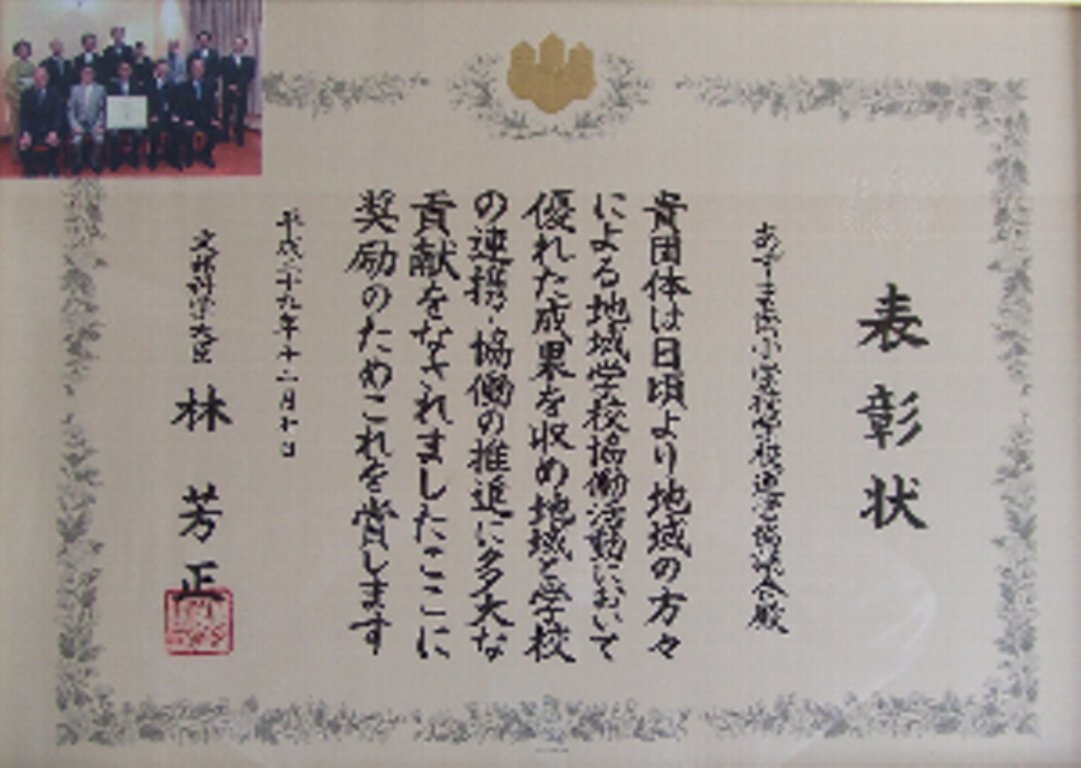 表彰状
小学校学校運営協議会殿
貴団体は日頃より地域の方々
による地域学校協働活動において
優れた成果を収め地域と学校
の連携・協働の推進に多大な
貢献をなされましたここに
奨励のためこれを賞します
平成二十九年十二月七日
文部科学大臣 林 芳正